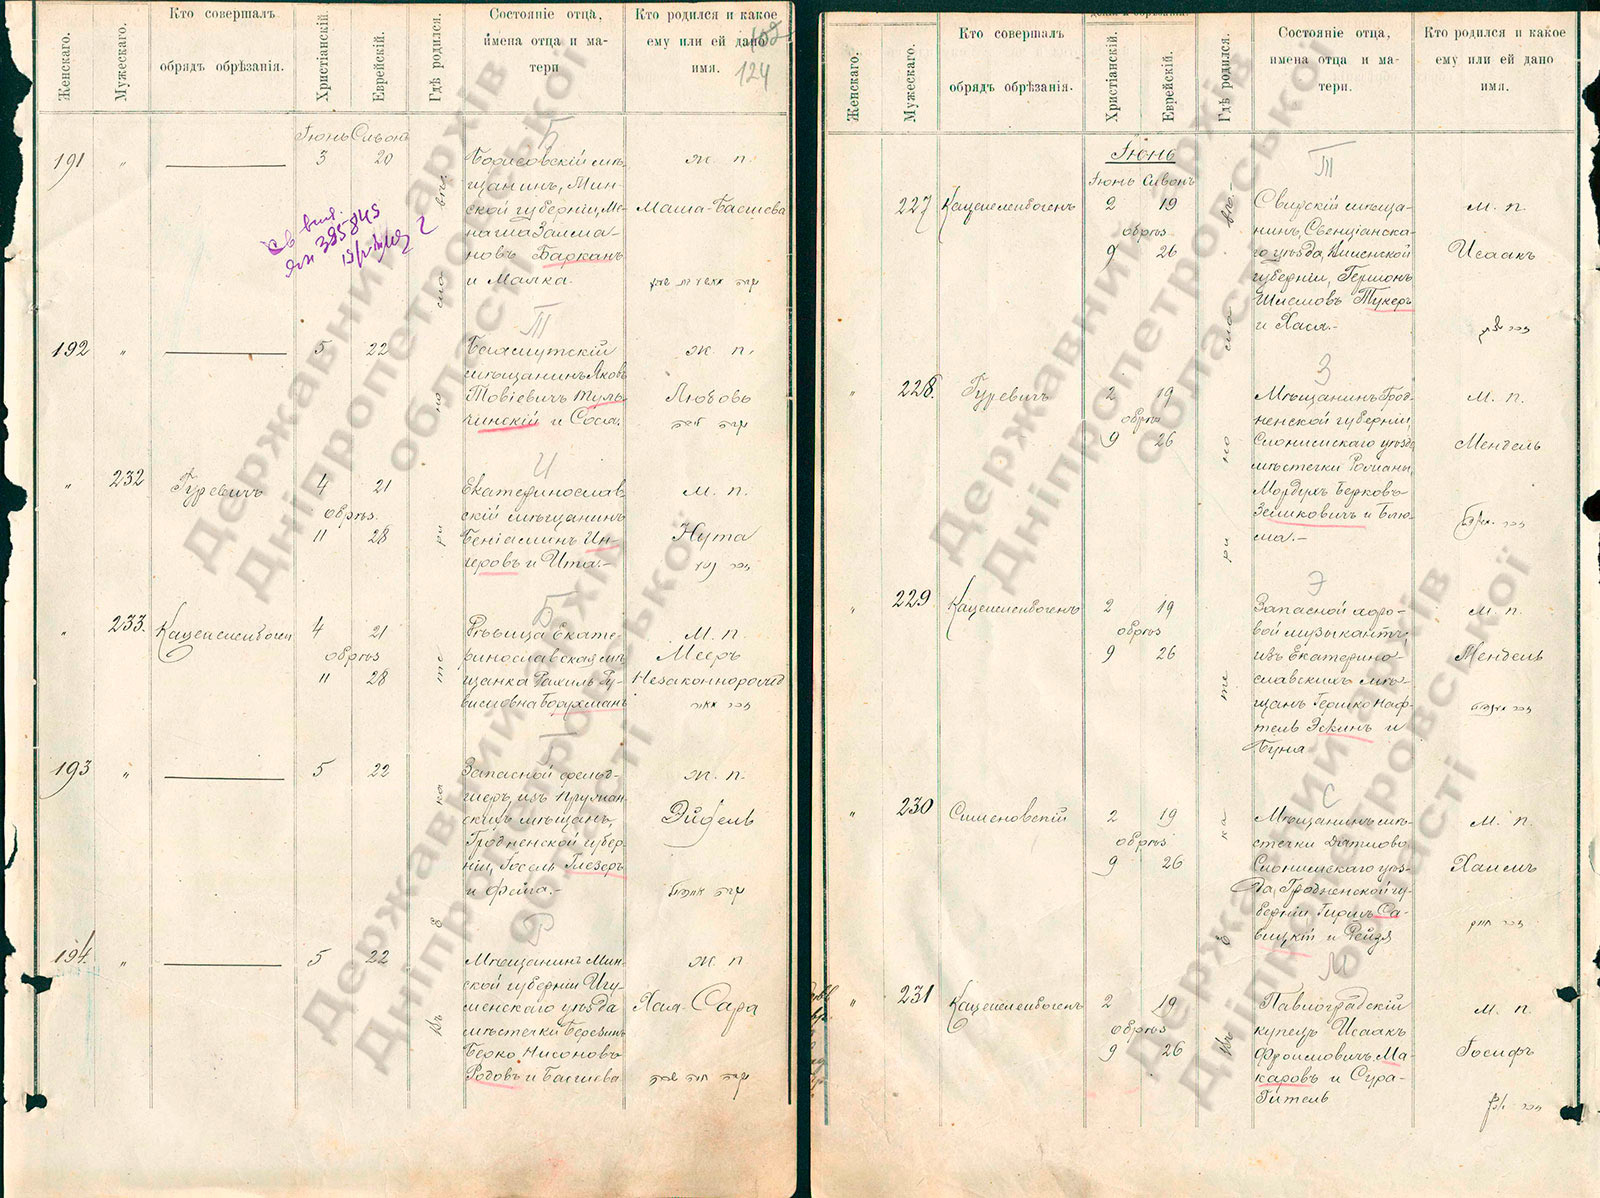 Женскаго.
Мужескаго.
Кто совершалъ
обрядъ обрѣзанія.
Христіанскій.
Еврейскій.
Гдѣ родился.
Состояніе отца,
имена отца и ма-
тери
Кто родился и какое
ему или ей дано
имя.
124
Іюнь Сивонъ
191 „ 3 20
Б
Борисовскій мѣ-
щанинъ, Мин-
ской губерніи, Ме-
наша Залма-
новъ Барканъ
и Малка.
ж. п.
Маша-Басшева
192 „ 5 22
Т
Бахмутскій
мѣщанинъ Яковъ
Товіевичъ Туль-
чинскій и Сося.
ж. п.
Любовь
„ 232 Гуревичъ 4 21
обрѣз.
11 28
И
Екатеринослав-
скій мѣщанинъ
Беніаминъ Ин-
геровъ и Ита.-
м. п.
Нута
„ 233. Каценеленбоген 4 21
обрѣз
11 28
Б
Дѣвица Екате-
ринославская мѣ-
щанка Рахиль Ту-
висовна Боорхманъ
м. п.
Мееръ
Незаконнорожд
193 „ 5 22
Г
Запасной фельд-
шеръ, изъ Пружан-
скихъ мѣщанъ,
Гродненской губер-
ніи, Іосель Глезеръ
и Фейга.-
ж. п.
Эйдель
194. „ 5 22
Р
Мѣщанинъ Мин-
ской губерніи Игу-
менскаго уѣзда
мѣстечки Березинъ
Берко Нисоновъ
Родовъ и Басшева
ж. п
Хая-Сара
Въ Екатеринославѣ
Женскаго.
Мужескаго.
Кто совершалъ
обрядъ обрѣзанія.
Христіанскій.
Еврейскій.
Гдѣ родился.
Состояніе отца,
имена отца и ма-
тери.
Кто родился и какое
ему или ей дано
имя.
Іюнь
Іюнь Сивонъ
227 Каценеленбогенъ 2 19
обрѣз
9 26
Т
Свирскій мѣща-
нинъ, Свенцянска-
го уѣзда, Виленской
губерніи, Гершонъ
Шлемовъ Тукеръ
и Хася.-
м. п.
Исаакъ
„ 228. Гуревичъ 2 19
обрѣз
9 26
З
Мѣщанинъ Грод-
ненской губерніи,
Слонимскаго уѣзда
мѣстечки Рожаны,
Мордухъ Берковъ
Зеликовичъ и Блю-
ма.-
м. п.
Мендель
„ 229 Каценеленбогенъ 2 19
обрѣз
9 26
Э
Запасной адро-
вой музыкантъ,
изъ Екатерино-
славскихъ мѣ-
щанъ Гершко Наф-
тель Эскинъ и
Буня
м. п.
Мендель
„ 230 Сименовскій 2 19
обрѣз
9 26
С
Мѣщанинъ мѣ-
стечки Дятлово
Слонимскаго уѣз-
да, Гродненской гу-
берніи Гиршъ Са-
вицкій и Рейзя
м. п.
Хаимъ
„ 231 Каценеленбогенъ 2 19
обрѣз
9 26
М
Павлоградскій
купецъ Исаакъ
Фроимовичъ Ма-
каровъ и Сура-
Гитель
м. п.
Іосифъ
Въ Екатеринославѣ
Державний архів
Дніпропетровської
області